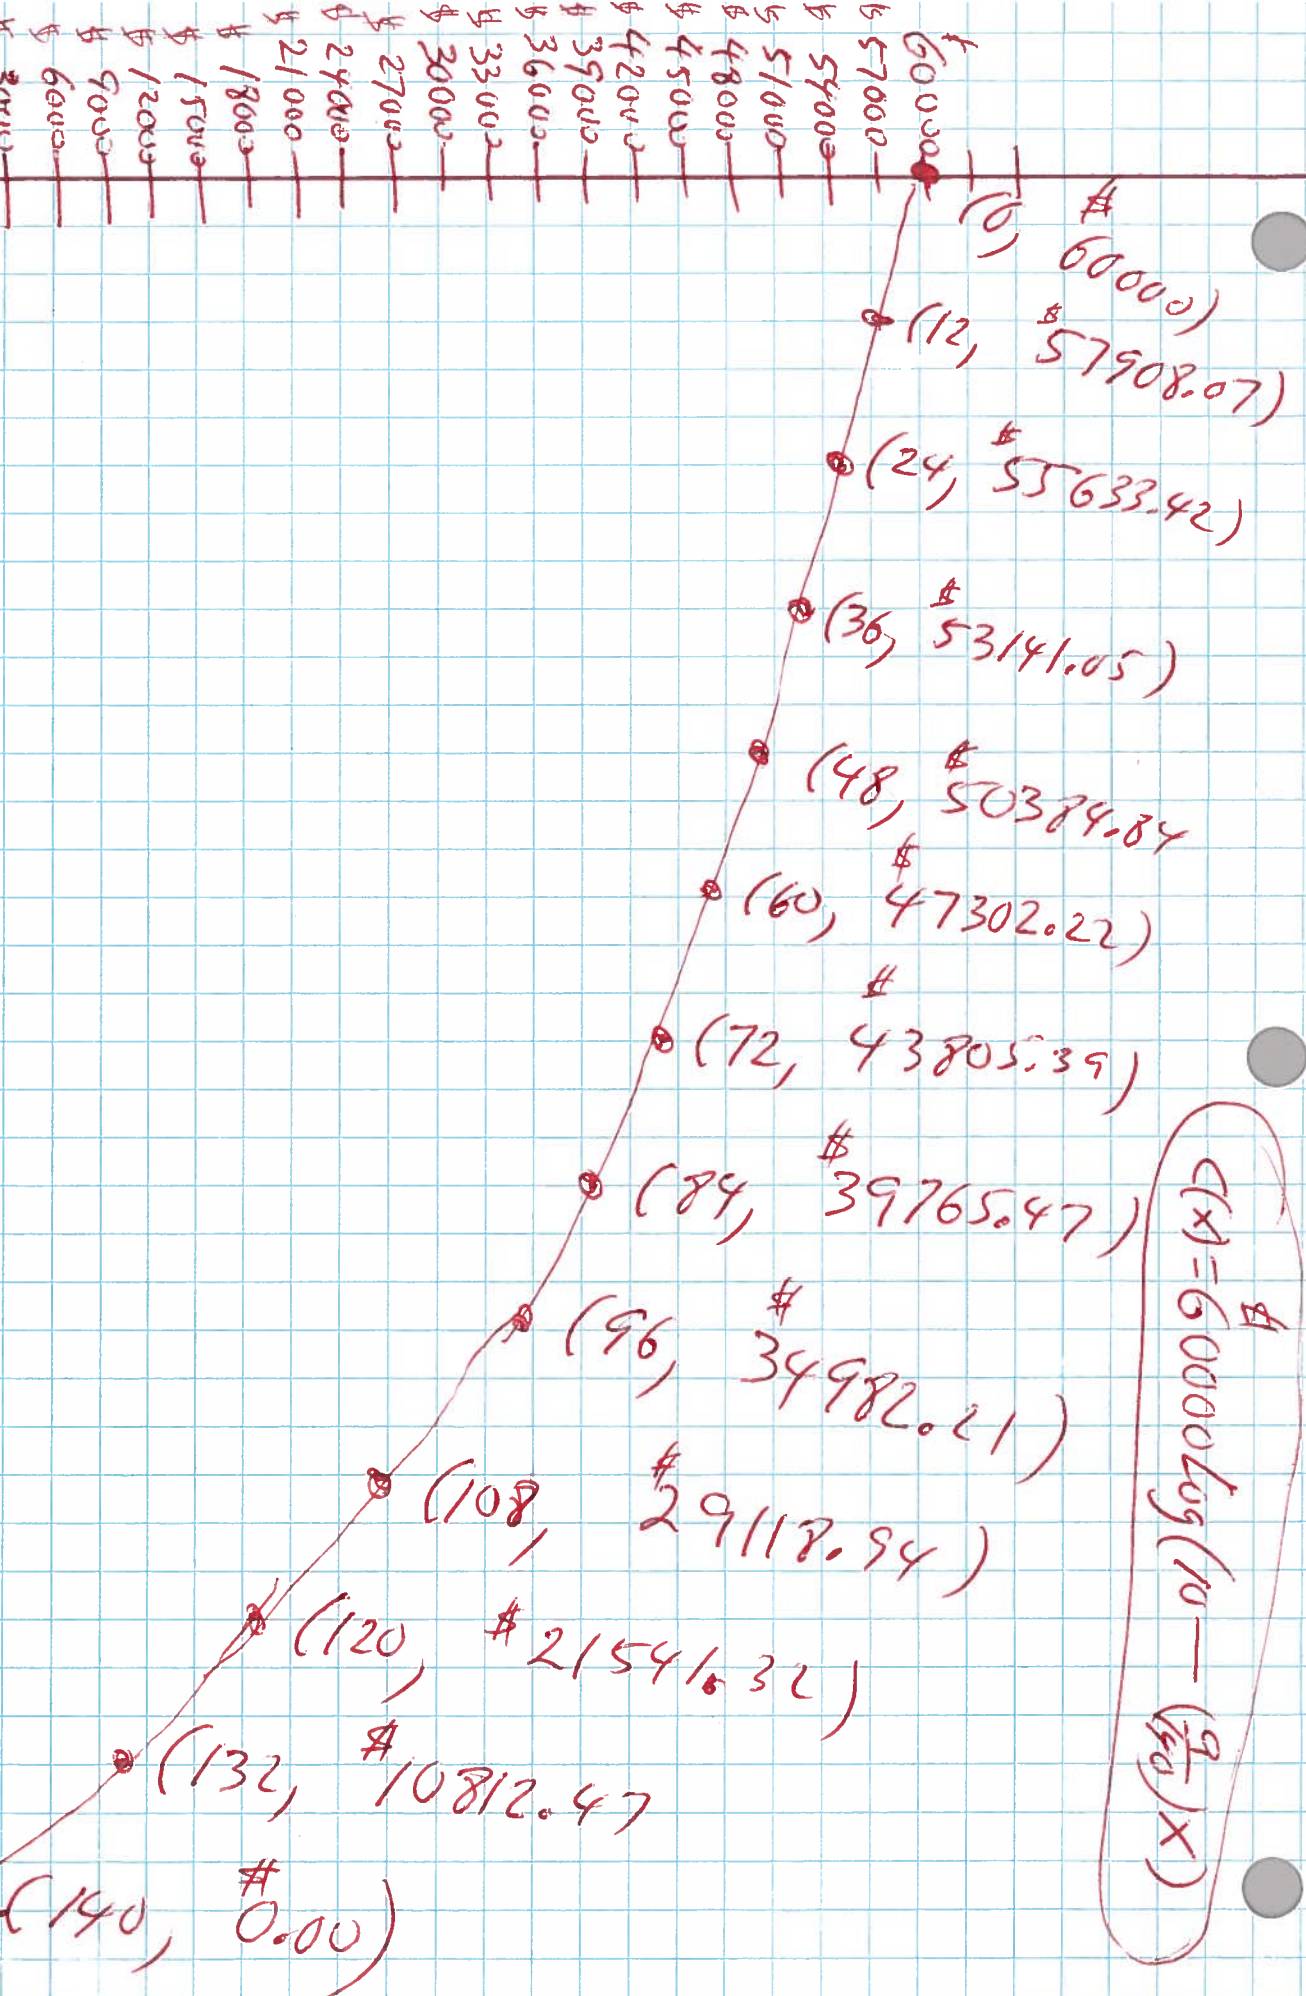 $ 60000
$ 57000
$ 54000
$ 51000
$ 48000
$ 45000
$ 42000
$ 39000
$ 36000
$ 33000
$ 30000
$ 27000
$ 24000
$ 21000
$ 18000
$ 15000
$ 12000
$ 9000
$ 6000
(0, $60000)
(12, $57908.07)
(24, $55633.42)
(36, $53141.05)
(48, $50384.84
(60, $47302.22)
(72, $43805.39)
(84, $39765.47)
(96, $34982.21)
(108, $29118.94)
(120, $21541.32)
(132, $10812.47
(140, $0.00)
C(x)=$60000log(10-(9/140)x)